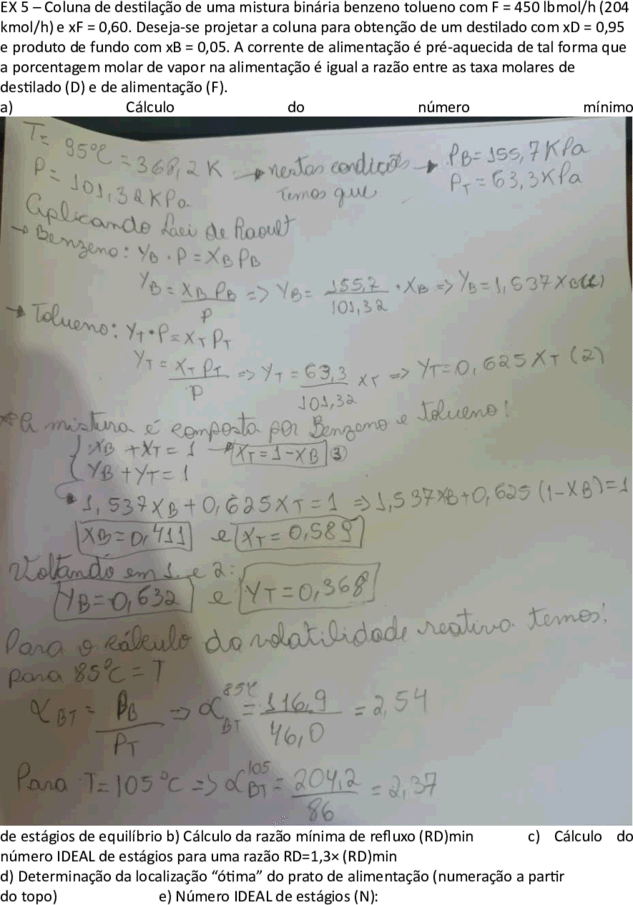 EX 5 – Coluna de destilação de uma mistura binária benzeno tolueno com F = 450 lbmol/h (204
kmol/h) e xF = 0,60. Deseja-se projetar a coluna para obtenção de um destilado com xD = 0,95
e produto de fundo com xB = 0,05. A corrente de alimentação é pré-aquecida de tal forma que
a porcentagem molar de vapor na alimentação é igual a razão entre as taxa molares de
destilado (D) e de alimentação (F).
a) Cálculo do número mínimo
T= 95°C = 368,2 K → nestas condições → PB= 155,7 KPa
P= 101,32 KPa temos que PT= 63,3 KPa
Aplicando Lei de Raoult
→ Benzeno: YB · P = XB PB
YB = XB PB / P => YB = 155,7 / 101,32 · XB => YB = 1,537 XB (1)
→ Tolueno: YT · P = XT PT
YT = XT PT / P => YT = 63,3 / 101,32 XT => YT = 0,625 XT (2)
* A mistura é composta por Benzeno e Tolueno!
{ XB + XT = 1 → XT = 1 - XB (3)
{ YB + YT = 1
1,537 XB + 0,625 XT = 1 => 1,537 XB + 0,625 (1 - XB) = 1
XB = 0,411 e XT = 0,589
Voltando em 1 e 2:
YB = 0,632 e YT = 0,368
Para o cálculo da volatilidade reativa temos!
para 85°C = T
αBT = PB / PT => α BT 85°C = 116,9 / 46,0 = 2,54
Para T = 105°C => α BT 105 = 204,2 / 86 = 2,37
de estágios de equilíbrio b) Cálculo da razão mínima de refluxo (RD)min c) Cálculo do
número IDEAL de estágios para uma razão RD=1,3× (RD)min
d) Determinação da localização “ótima” do prato de alimentação (numeração a partir
do topo) e) Número IDEAL de estágios (N):